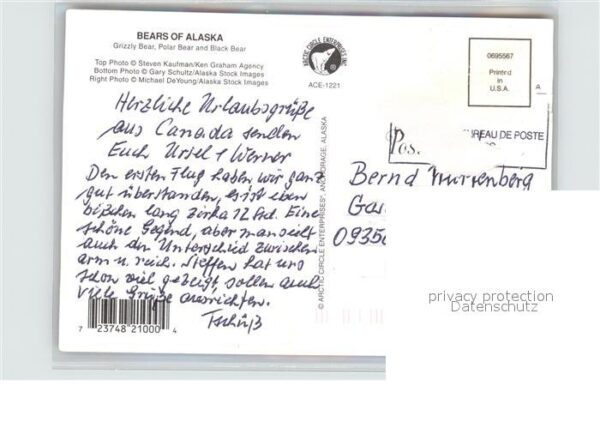 BEARS OF ALASKA
Grizzly Bear, Polar Bear and Black Bear
Top Photo © Steven Kaufman/Ken Graham Agency
Bottom Photo © Gary Schultz/Alaska Stock Images
Right Photo © Michael DeYoung/Alaska Stock Images
ARCTIC CIRCLE ENTERPRISES INC
ACE-1221
0695567
Printed in
U.S.A.
A
REAU DE POSTE
Pos
Herzliche Urlaubsgrüße
aus Canada senden
Euch Ursel & Werner
Den ersten Flug haben wir ganz
gut überstanden, es ist eben
bißchen lang zirka 12 Std. Eine
schöne Gegend, aber man sieht
auch den Unterschied zwischen
arm u. reich. Steffen hat uns
schon viel gezeigt, sollen auch
viele Grüße ausrichten.
Tschüß
© ARCTIC CIRCLE ENTERPRISES®, ANCHORAGE, ALASKA
Bernd
0935
7 23748 21000 4
privacy protection
Datenschutz